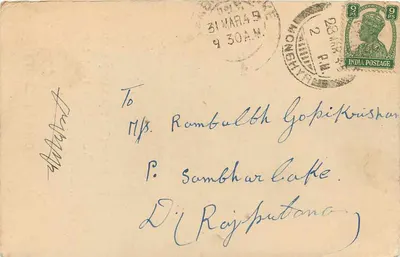 31 MAR 45
9 30 A.M.
28 MAR
2 P.M.
MONGHYR
9 PS 9 PS
INDIA POSTAGE
To
M/s. Rambalbh Gopikrishan
P. Sambhar Lake.
D. (Rajputana)